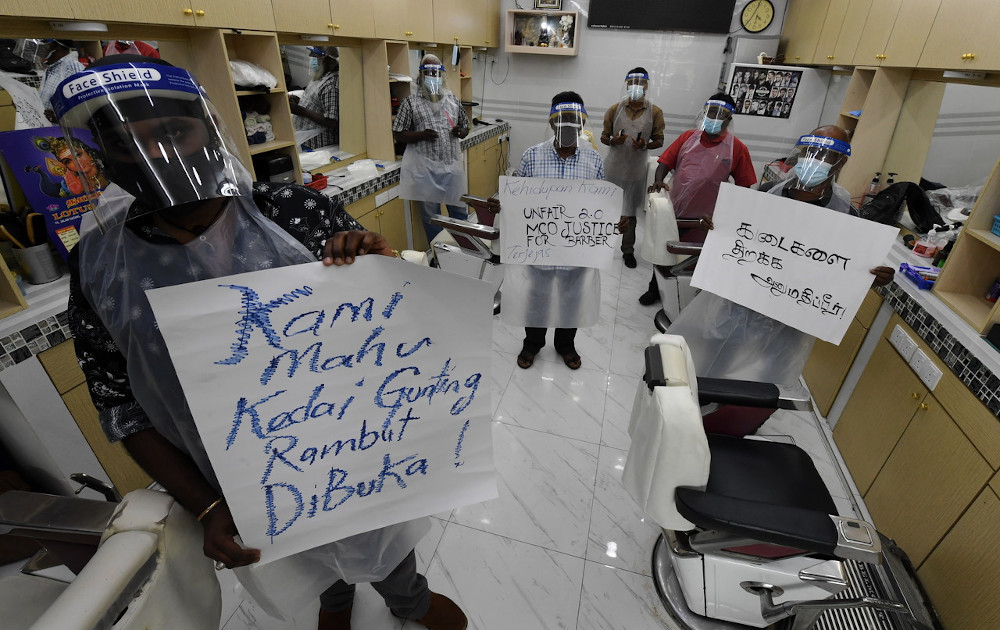 Face Shield
Protective Isolation Mask
LOTU
Kami
Mahu
Kedai Gunting
Rambut
DiBuka !
Kehidupan Kami
UNFAIR 2.0
MCO JUSTICE
FOR BARBER
Terjejas
கடைகளை
திறக்க
அனுமதிப்பீர்!